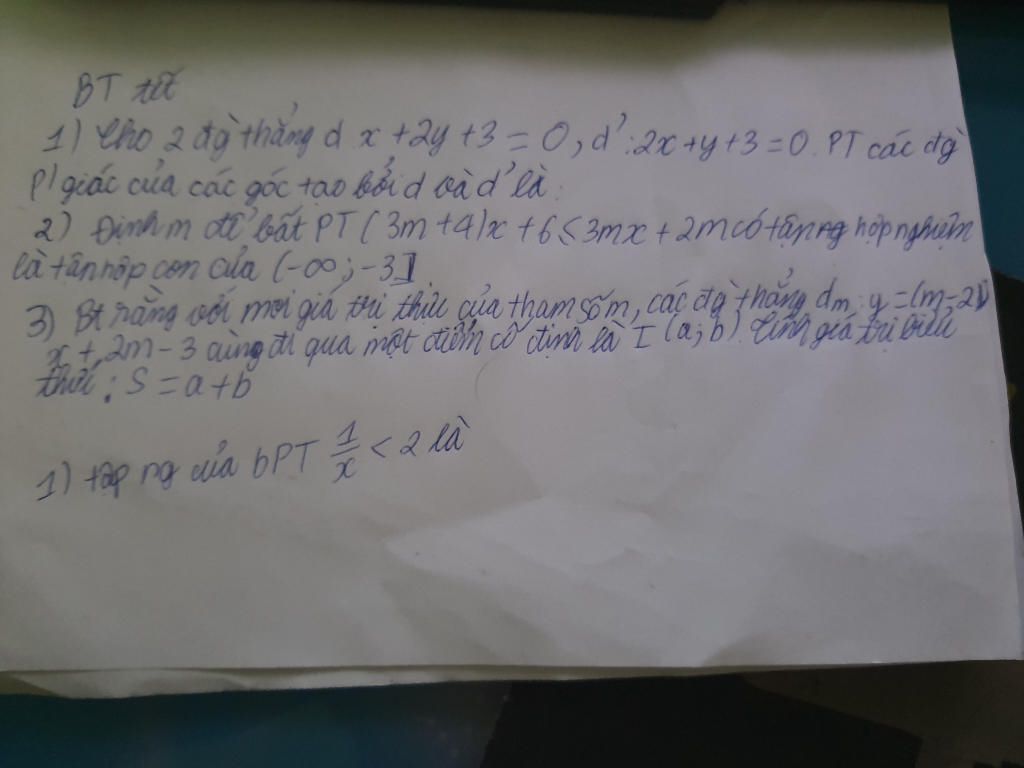 BT tết
1) Cho 2 đg thẳng d x + 2y + 3 = 0, d' : 2x + y + 3 = 0. PT các đg
p/giác của các góc tạo bởi d và d' là :
2) Định m để bất PT (3m + 4)x + 6 ≤ 3mx + 2m có tập ng hợp nghiệm
là tập hợp con của (-∞; -3]
3) Bt rằng với mọi giá trị thực của tham số m, các đg thẳng dm : y = (m - 2)
x + 2m - 3 cùng đi qua một điểm cố định là I (a; b). Tính giá trị biểu
thức : S = a + b
1) tập ng của bPT 1/x < 2 là